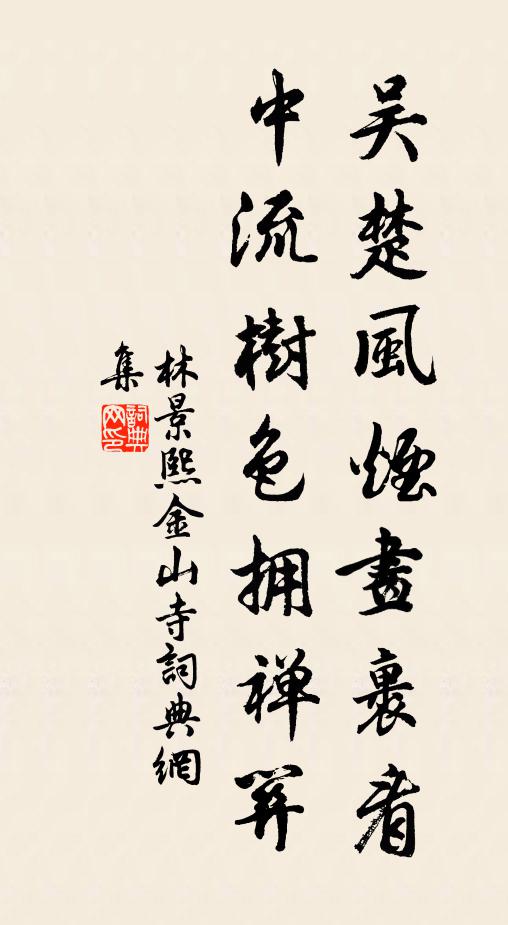 吴楚風煙畫裏看
中流樹色拥禅關
林景熙金山寺詞典網
集
詞典网印